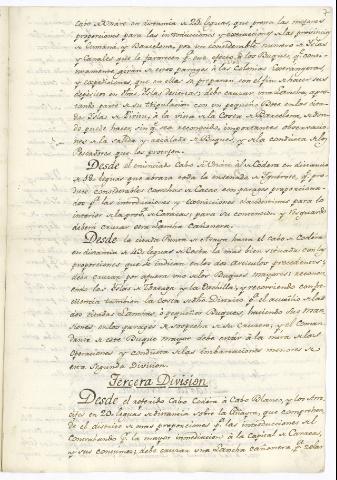 Cabo de Unare en distancia de 20 leguas, que presta las mejores
proporciones para las introducciones y extracciones de las provincias
de Cumana y Barcelona, por un considerable numero de Islas
y Canales que le favorecen pa. ese efecto, a los Buques, qe.
de estos parages a las Colonias Extrangeras
y expediciones, que en ellas se preparan con el fin de hacer sus
depositos en otras Islas desiertas; debe cruzar una Lancha,
parte de su tripulacion con un pequeño Bote en las
Islas de Piritu, a la vista de la Costa de Barcelona, de donde
puede hacer, sin qe. sea reconocido, importantes observaciones
de la salida y recalada de Buques, y de la conducta de los
Pescadores que los
Desde el enunciado Cabo de Unare al de Codera en distancia
de 18 leguas que abraza toda la ensenada de Higuerote, qe. produce
considerables cosechas de Cacao con parages proporcionados
pa. las introducciones y extracciones clandestinas para lo
interior de la prova. de Caracas; para su contencion y resguardo
deberá cruzar otra Lancha Cañonera.
Desde la citada Punta de Araya hasta el cabo de Codera
en distancia de leguas de Costa la mas bien situada con las
proporciones que se indican en los dos Articulos precedentes;
debe cruzar por afuera uno de los Buques mayores; reconociendo
las Islas de Tortuga y la Orchilla; y recorriendo con frecuencia
tambien la Costa de dho. Distrito pa. el auxilio de las
dos citadas Lanchas ó pequeños Buques, haciendo sus mansiones
en los parages de sospecha de su Crucero; y el Comandante
de este Buque mayor debe estar á la mira de las
Operaciones y conducta de las embarcaciones menores de
esta Segunda Division.
Tercera Division
Desde el referido Cabo Codera á Cabo Blanco, y los
en 20 leguas de distancia sobre la Guayra, que comprehende
el distrito de mas proporciones pa. las introducciones del
Contrabando pa. la mayor inmediacion á la capital de Caracas,
y sus consumos; debe cruzar una Lancha cañonera pa. celar